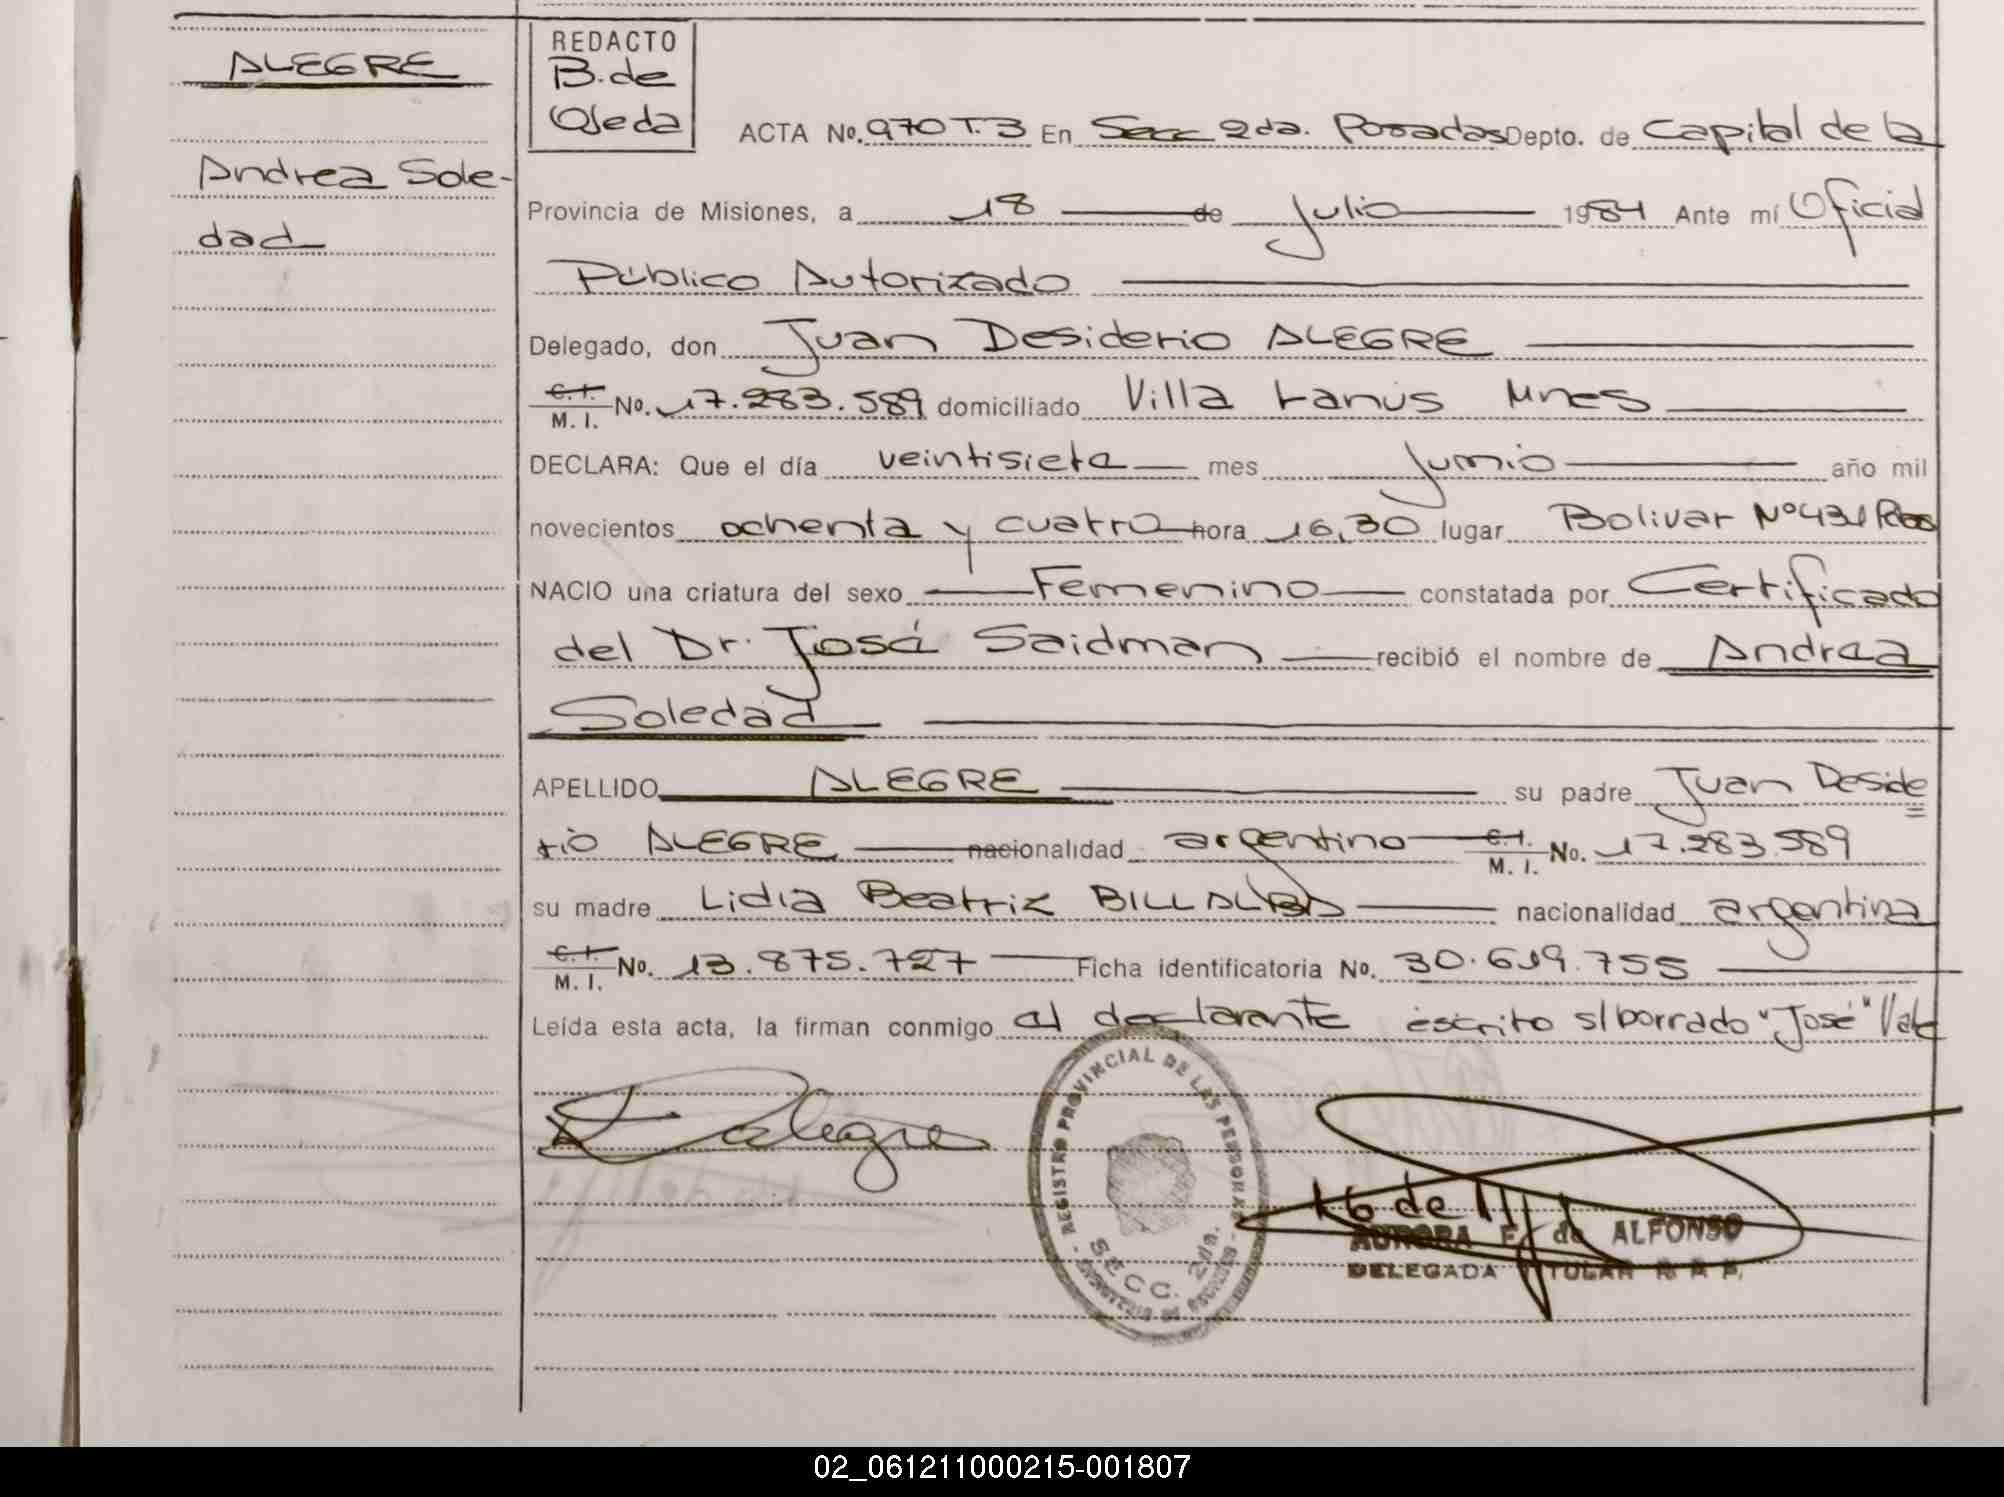 ALEGRE
Andrea Sole-
dad
REDACTO
B. de
Ojeda
ACTA No. 970 T. 3 En Secc 2da. Posadas Depto. de Capital de la
Provincia de Misiones, a 18 de Julio 1984 Ante mí Oficial
Público Autorizado
Delegado, don Juan Desiderio ALEGRE
C.I.
M. I. No. 17.283.589 domiciliado Villa Lanús Mnes
DECLARA: Que el día veintisiete mes Junio año mil
novecientos ochenta y cuatro hora 16,30 lugar Bolivar Nº 431 Pdas
NACIO una criatura del sexo Femenino constatada por Certificado
del Dr. José Saidman recibió el nombre de Andrea
Soledad
APELLIDO ALEGRE su padre Juan Deside
rio ALEGRE nacionalidad argentino C.I.
M. I. No. 17.283.589
su madre Lidia Beatriz BILLALBA nacionalidad argentina
C.I.
M. I. No. 13.875.727 Ficha identificatoria No. 30.619.755
Leída esta acta, la firman conmigo el declarante escrito s/borrado "José" Vale
Alegre
REGISTRO PROVINCIAL DE LAS PERSONAS
SECC. 2da.
AURORA F. de ALFONSO
DELEGADA TITULAR R. P. P.
02_061211000215-001807